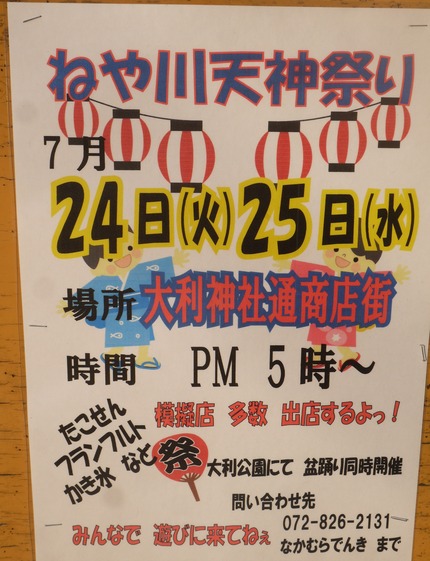 ねや川天神祭り
7月
24日(火)25日(水)
場所 大利神社通商店街
時間 PM 5時～
模擬店 多数 出店するよっ!
たこせん
フランフルト
かき氷 など
祭
大利公園にて 盆踊り同時開催
問い合わせ先
072-826-2131
なかむらでんき まで
みんなで 遊びに来てねぇ